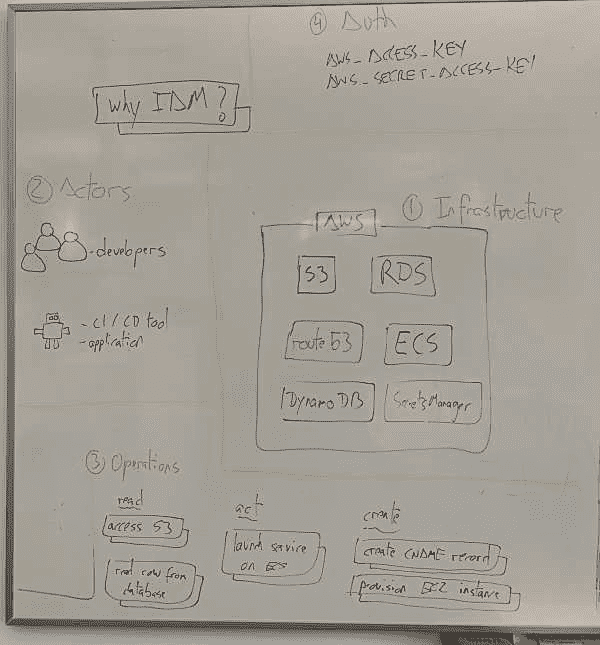 ④ Auth
AWS_ACCESS_KEY
AWS_SECRET_ACCESS_KEY
why IAM?
② Actors
- developers
- CI/CD tool
- application
① Infrastructure
AWS
S3
RDS
route 53
ECS
DynamoDB
SecretsManager
③ Operations
read
access S3
read row from
database
act
launch service
on ECS
create
create CNAME record
provision EC2 instance